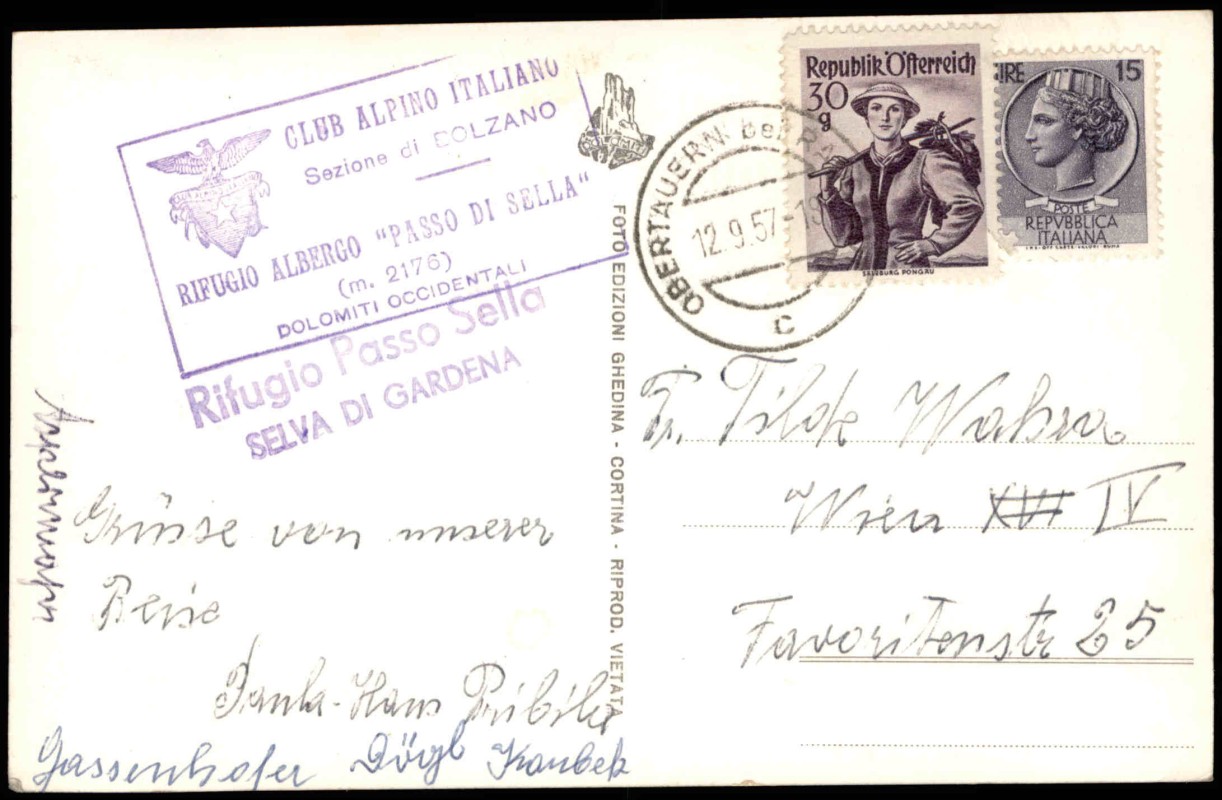 CLUB ALPINO ITALIANO
Sezione di BOLZANO
RIFUGIO ALBERGO "PASSO DI SELLA"
(m. 2176)
DOLOMITI OCCIDENTALI
Rifugio Passo Sella
SELVA DI GARDENA
Grüsse von unserer
Reise
Paula-Hans Pribila
Gassenhofer Dörfl Koubek
FOTO EDIZIONI GHEDINA - CORTINA - RIPROD. VIETATA
DOLOMITI
OBERTAUERN bei RA
12.9.57-19
c
Republik Österreich
30
g
SALZBURG PONGAU
LIRE 15
POSTE
REPVBBLICA
ITALIANA
Fr. Tilde Wabra
Wien XVI IV
Favoritenstr 25